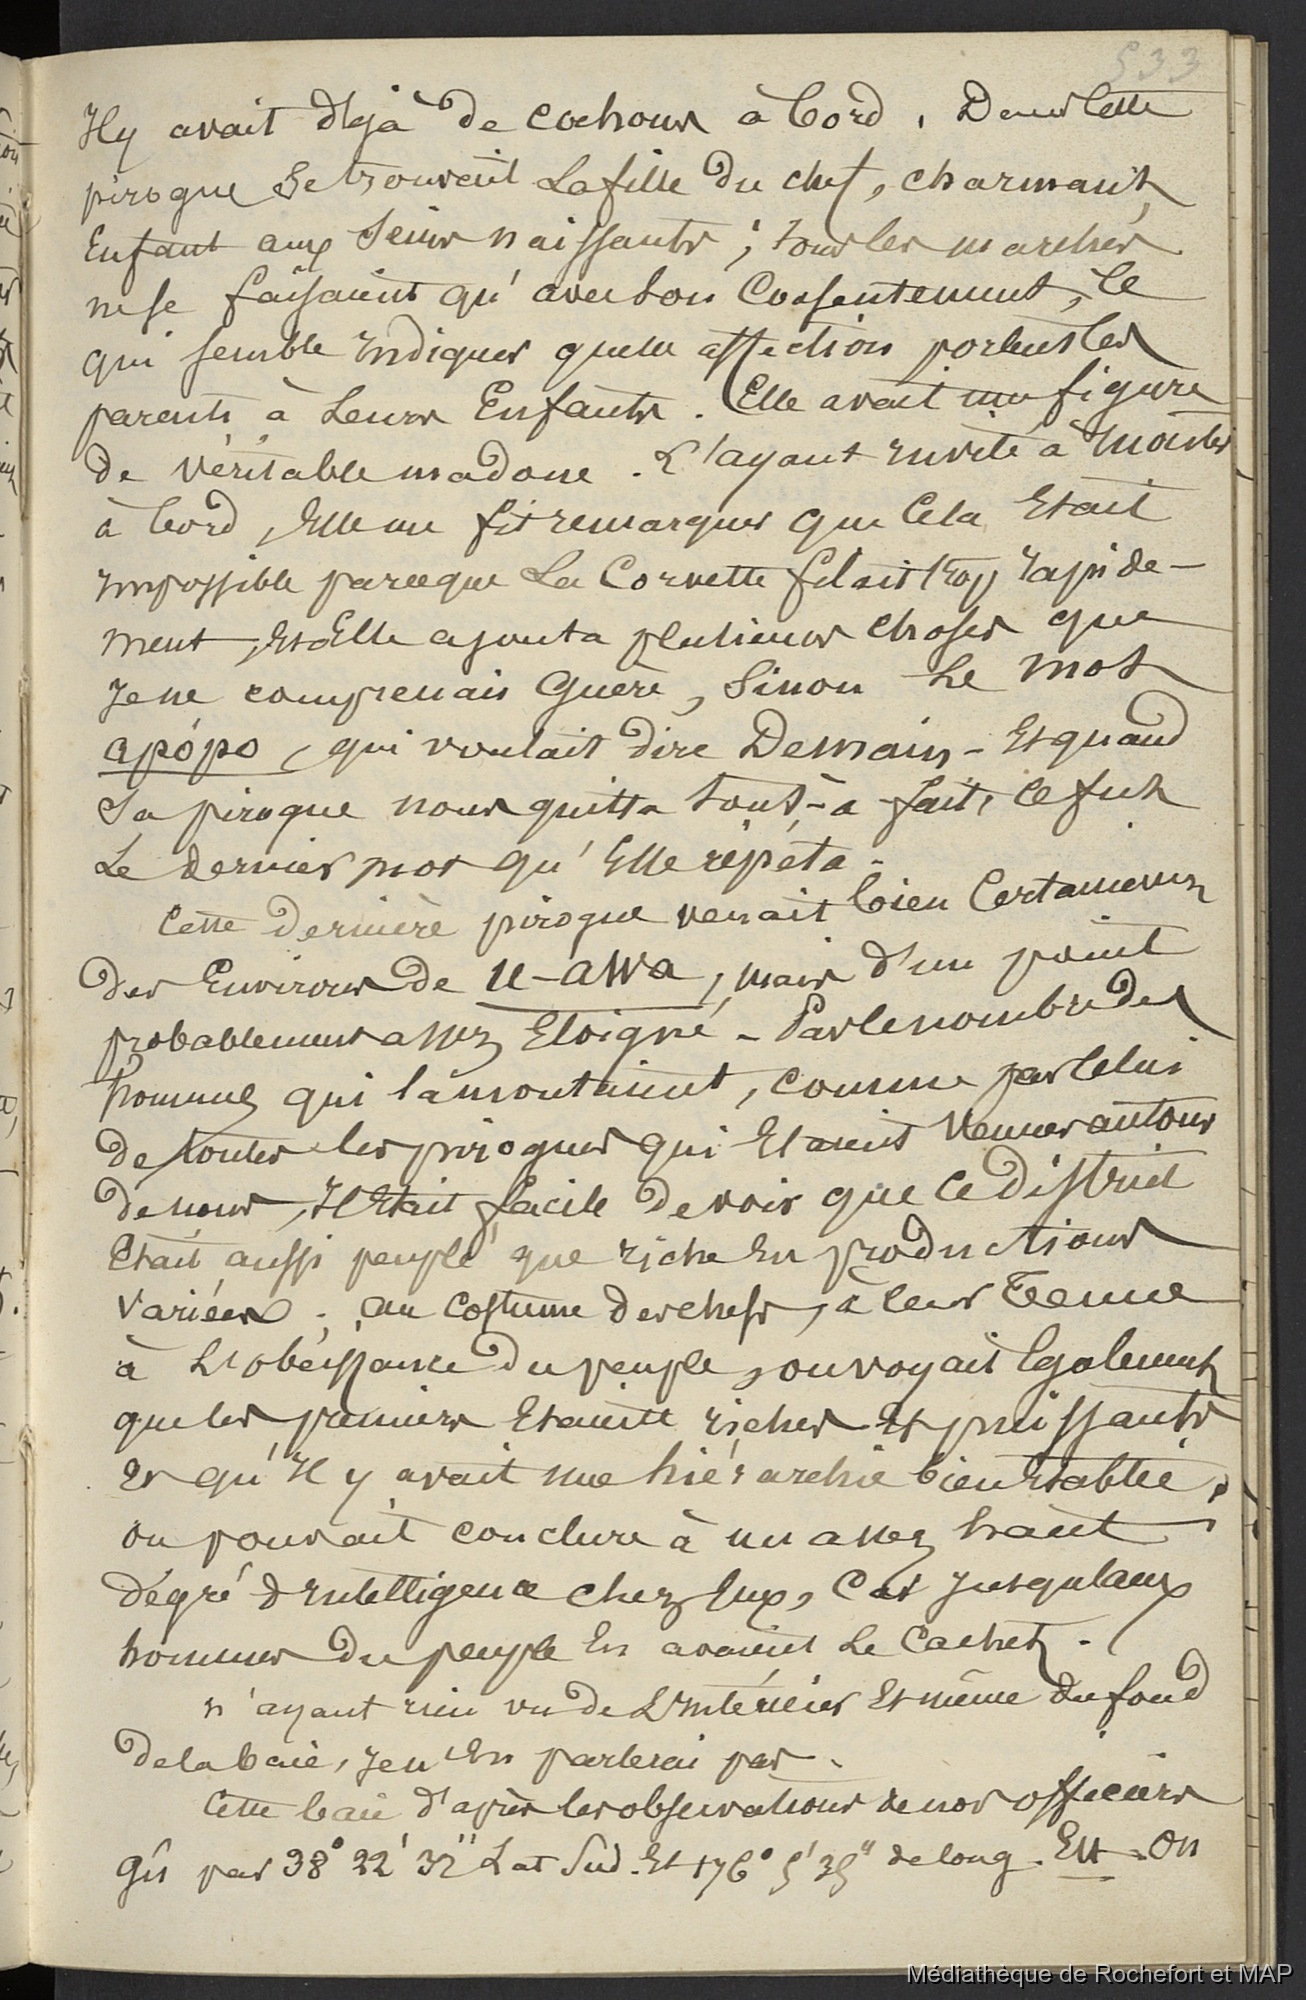 533
Il y avait déjà de cochons à bord. Dans cette
pirogue se trouvait la fille du chef, charmant
Enfant aux seins naissants ; tous les marchés
ne se faisaient qu'avec son consentement, ce
qui semble indiquer quelle affection portent les
parents à leurs Enfants. Elle avait une figure
de véritable madone. L'ayant invité à monter
à bord, Elle me fit remarquer que cela Etait
impossible parceque la Corvette filait trop rapide-
ment, Et Elle ajouta plusieurs choses que
je ne comprenais Guère, sinon le mot
apópo, qui voulait dire Demain - Et quand
sa pirogue nous quitta tout-à-fait, ce fut
le dernier mot qu'Elle répéta -
Cette dernière pirogue venait bien certainement
des Environs de u-awa, mais d'un point
probablement assez Eloigné - Par le nombre des
hommes qui la montaient, comme par celui
de toutes les pirogues qui Etaient venues autour
de nous, Il Etait facile de voir que ce District
Etait aussi peuplé que riche En productions
variées. au costume des chefs, à leur Tenue
à L'obéissance du peuple, on voyait Egalement
que les premiers Etaient riches Et puissants
Et qu'Il y avait une hiérarchie bien Etablie,
on pouvait conclure à un assez haut
dégré d'intelligence chez Eux, Car jusqu'aux
hommes du peuple En avaient le cachet.
n'ayant rien vu de L'Intérieur Et même du fond
de la baie, je n'En parlerai pas.
Cette baie d'après les observations de nos officiers
gît par 38° 22' 32" Lat Sud. Et 176° 5' 35" de long. Est. On
Médiathèque de Rochefort et MAP